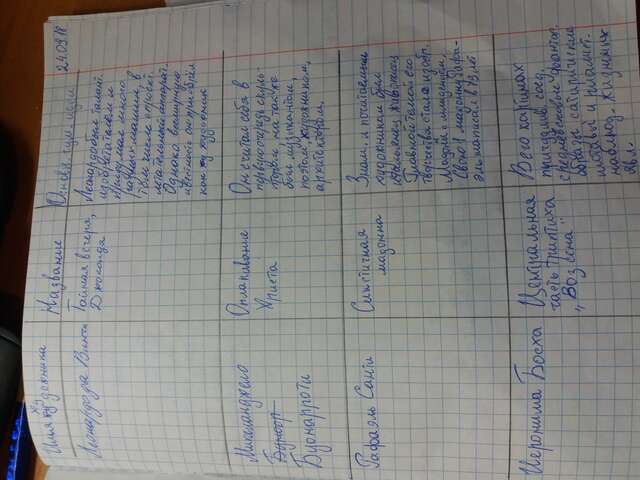 Имя художника Название Основ. гум. идеи 24.09.18
Леонардо да Винчи
Тайная вечеря,
Джоконда
Леонардо был талант.
изобретателем и
придумал много
разных машин, в
том числе спроект.
летательный аппарат.
Однако всемирную
известность он приобрёл
как художник
Микеланджело
Буонарроти
Оплакивание
Христа
Он считал себя в
первую очередь скуль-
птором, но также
был музыкантом,
поэтом, художником,
архитектором.
Рафаэль Санти
Сикстинная
мадонна
Знам. и почитаемым
художником был
итальянец живописец
Главной темой его
творчества стала изобр.
Мадонн с младенцем.
Свою 1 мадонну Рафа-
эль написал в 19 лет
Иеронима Босха
Центральная
часть триптиха
„Воз сена"
В его картинах
причудлив. соед.
средневековые фантас.
образы, сатирические
мотивы и реалист.
наблюд. жизненных
явл.